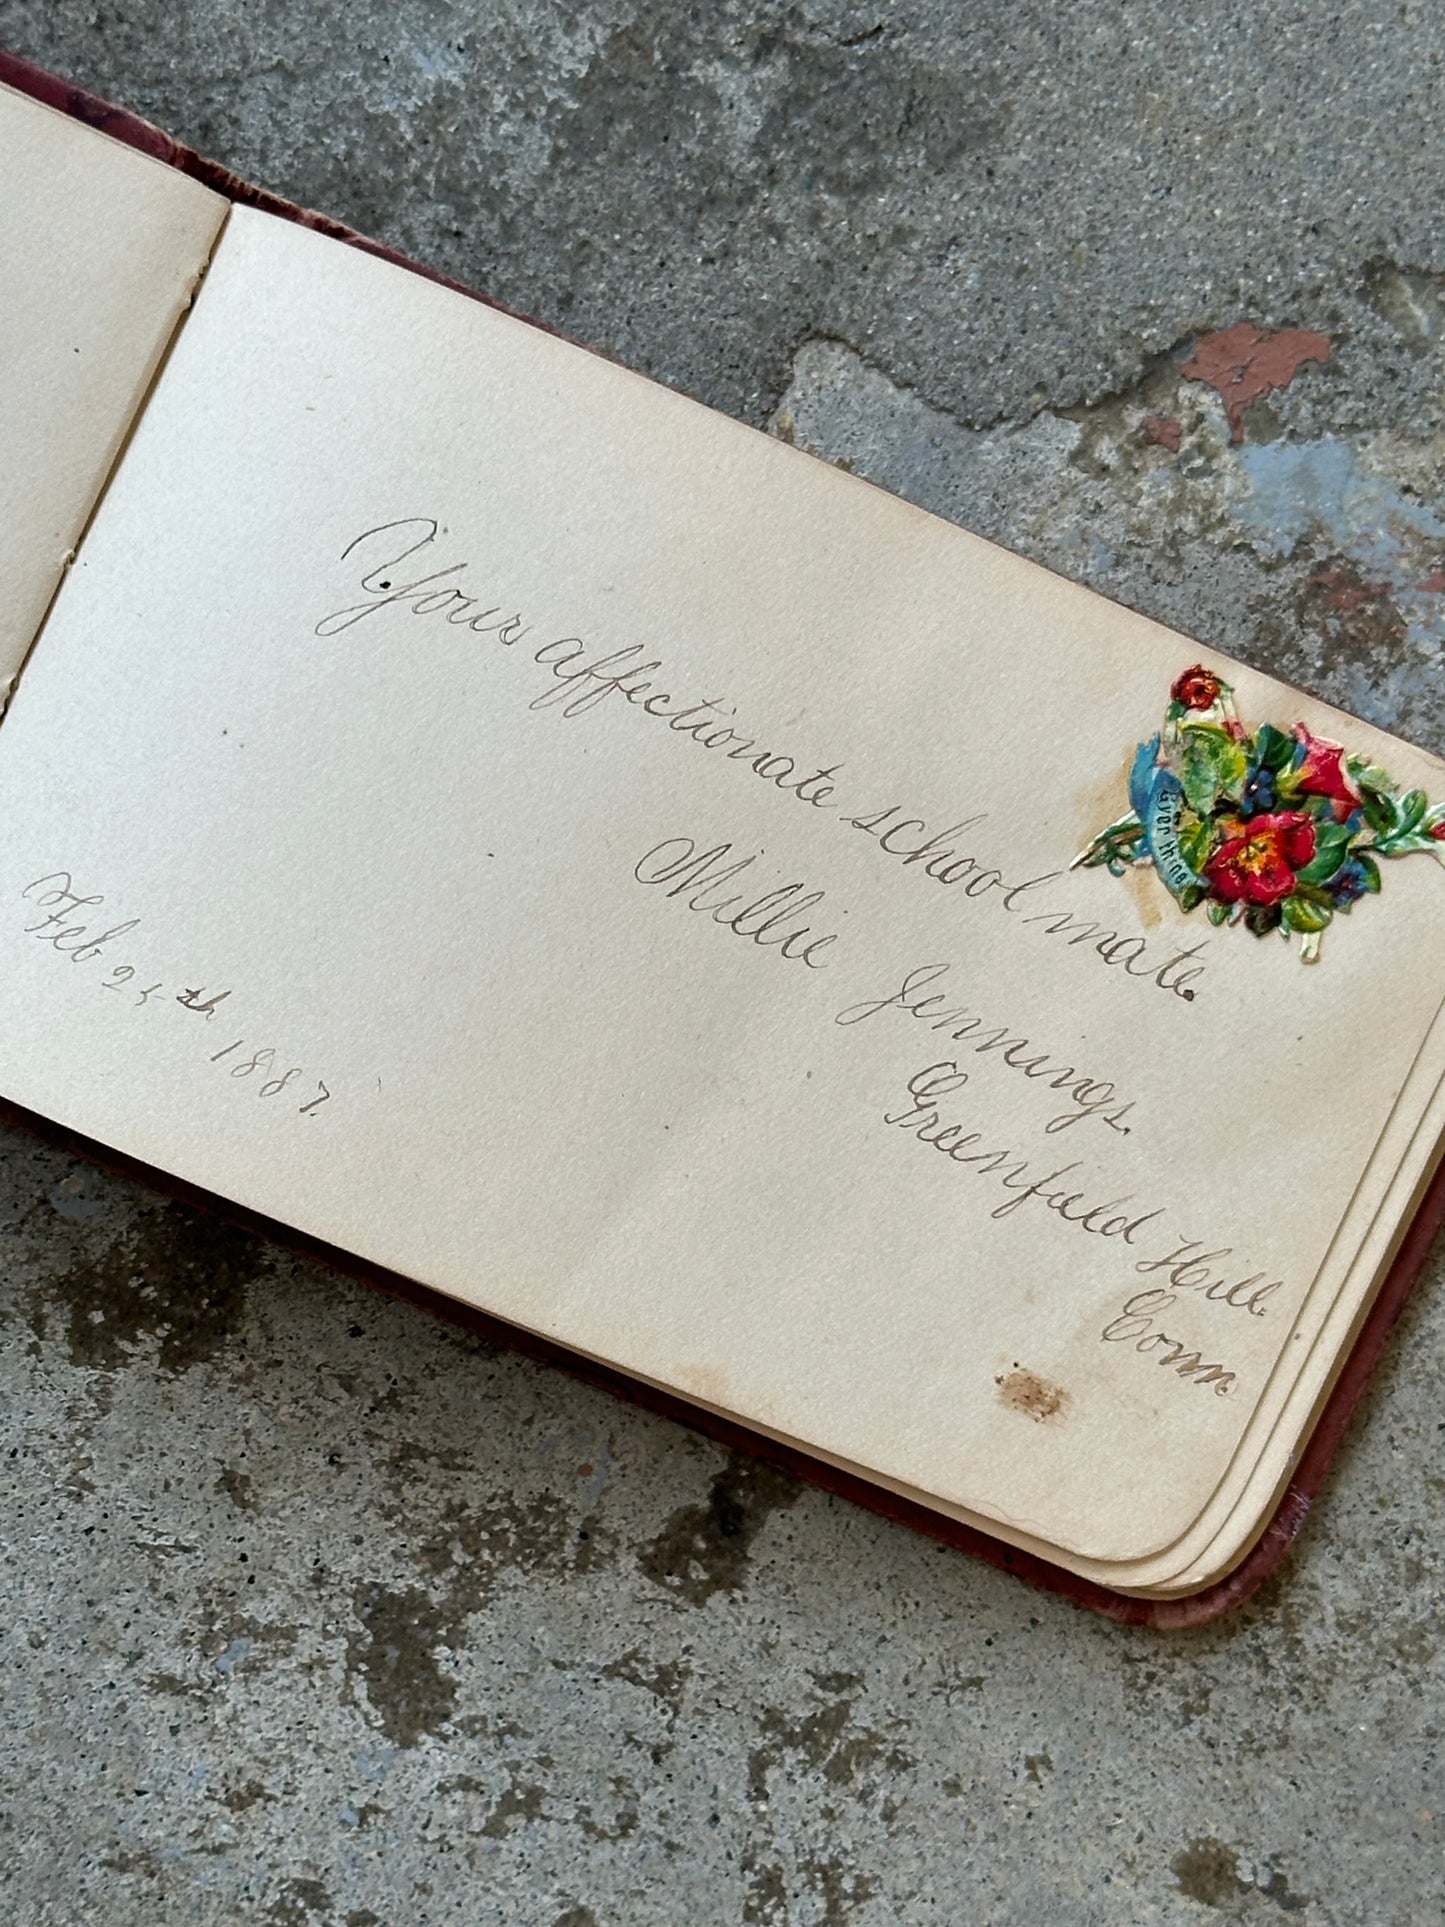 Your affectionate school mate.
Millie Jennings.
Greenfield Hill.
Conn.
Feb 25th 1887.
Ever thine